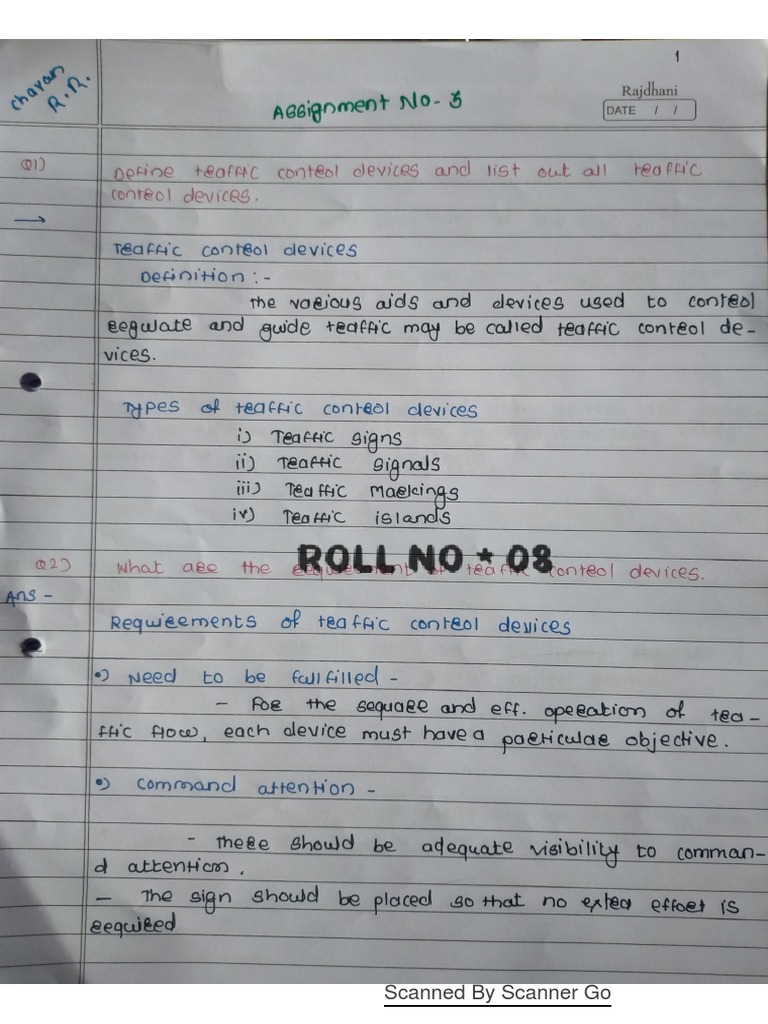 1
Chavan
R.R.
Rajdhani
DATE / /
Assignment No- 5
Q1) Define traffic control devices and list out all traffic
control devices.
→
Traffic control devices
Definition :-
The various aids and devices used to control
regulate and guide traffic may be called traffic control de-
vices.
Types of traffic control devices
i) Traffic signs
ii) Traffic signals
iii) Traffic markings
iv) Traffic islands
ROLL NO * 08
Q2) What are the requirement of traffic control devices.
Ans -
Requirements of traffic control devices
•) Need to be fullfilled -
- For the sequare and eff. operation of tra-
ffic flow, each device must have a particular objective.
•) command attention -
- There should be adequate visibility to comman-
d attention.
- The sign should be placed so that no extra effort is
required
Scanned By Scanner Go